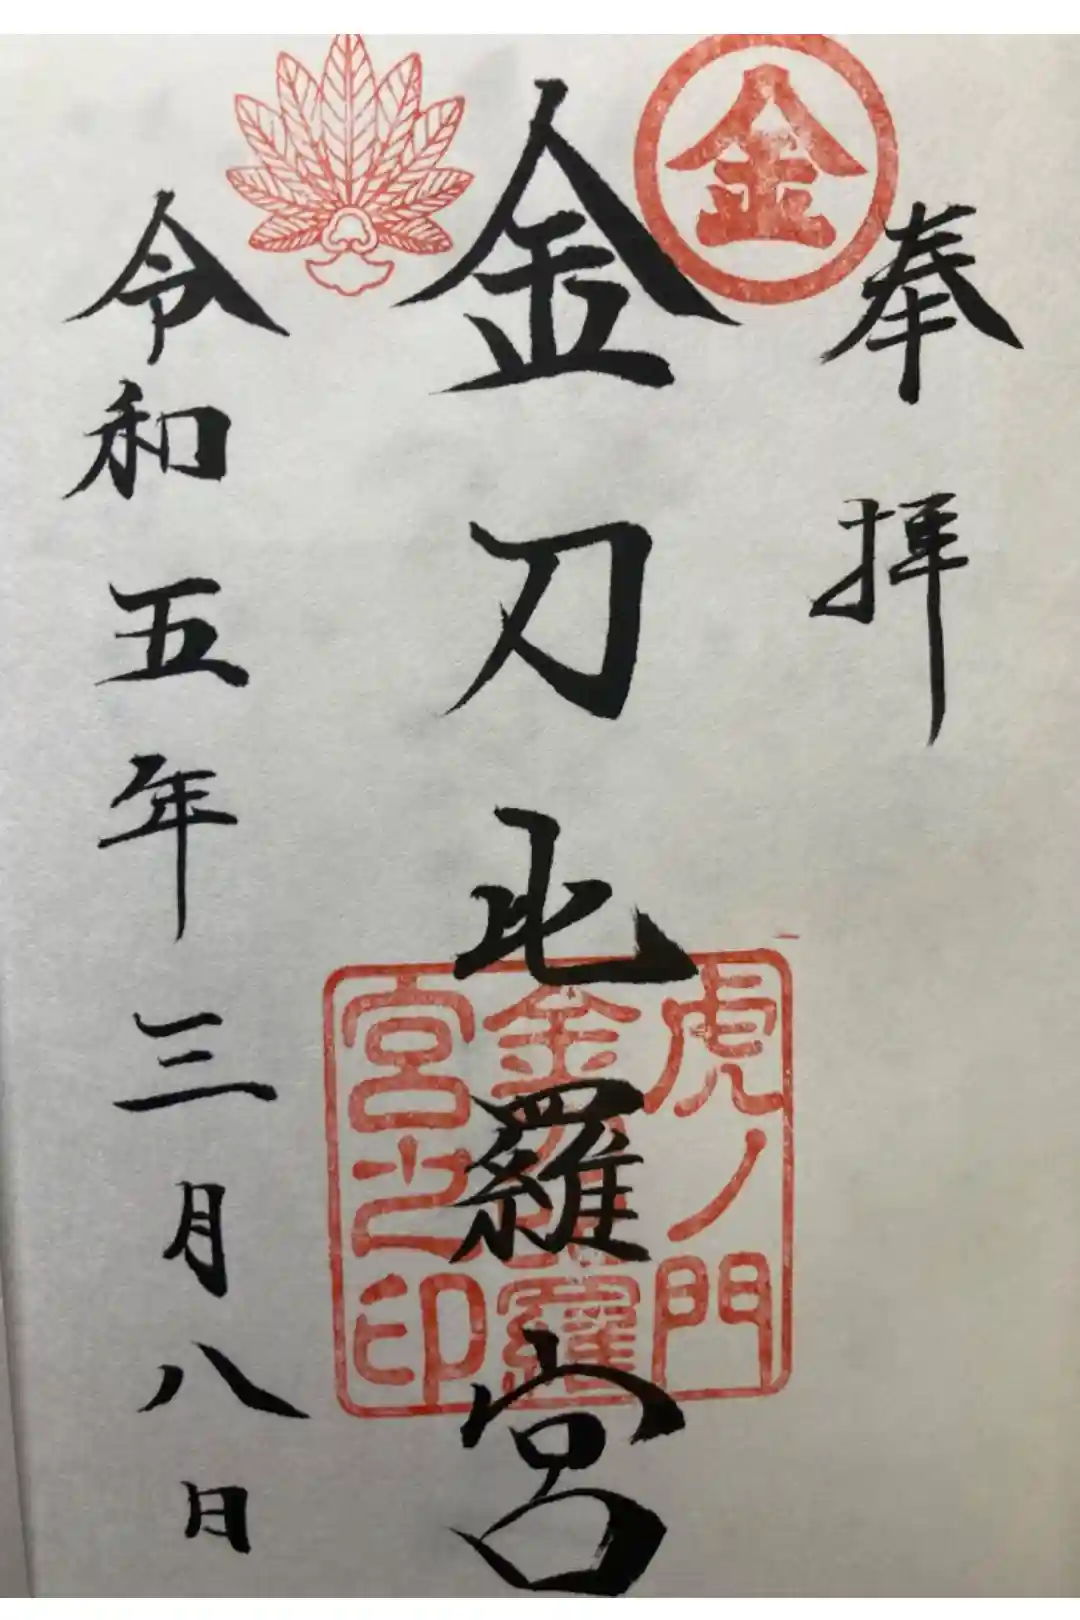 金
奉拝
金刀比羅宮
虎ノ門
金刀比羅
宮之印
令和五年三月八日